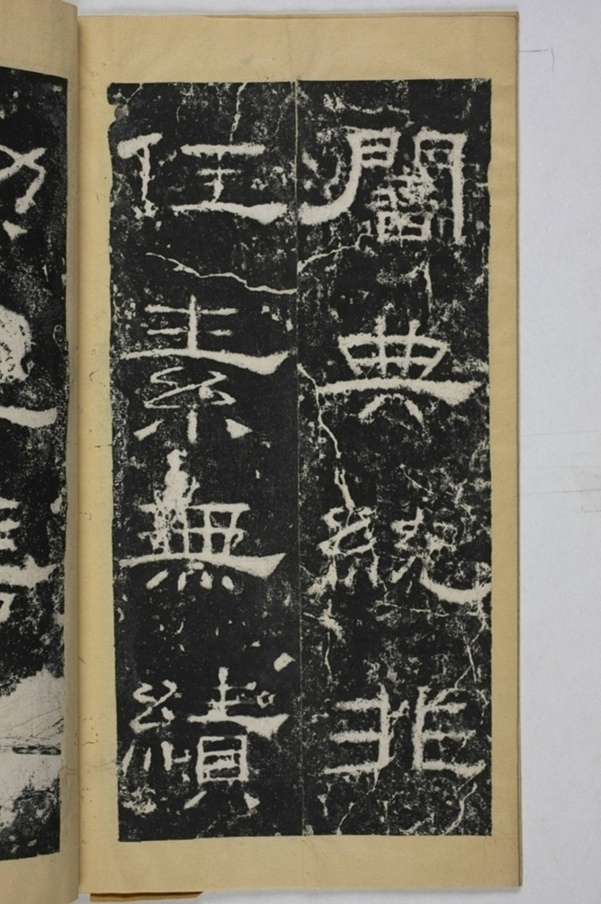 闇典統非
任素無績